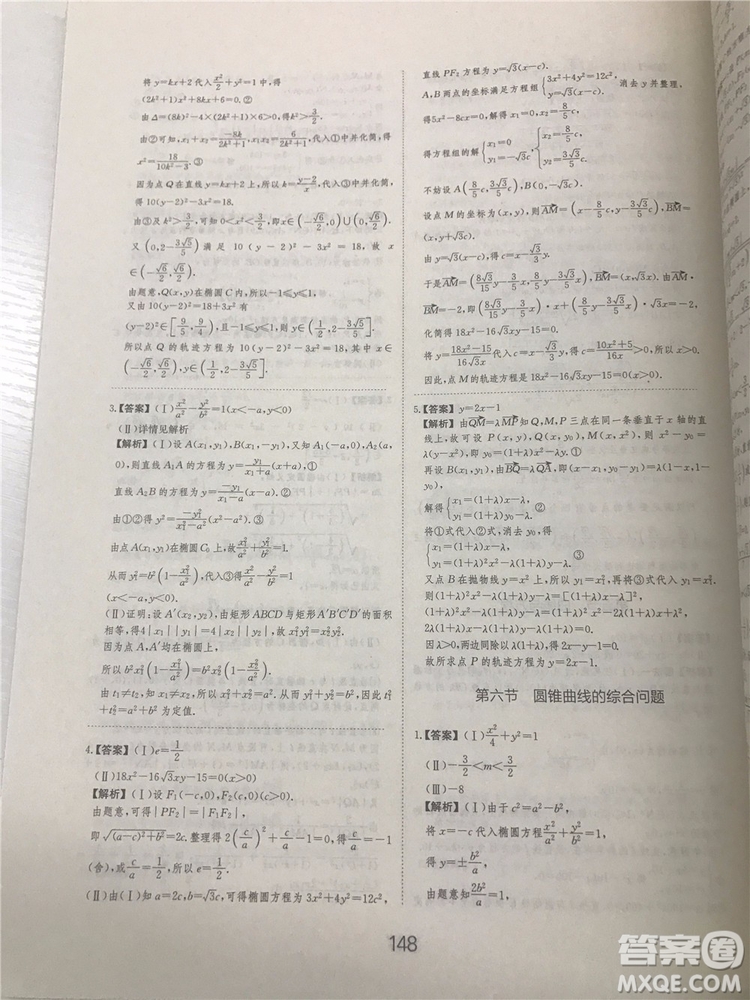 将 y=kx+2 代入 x²/2+y²=1 中,得
(2k²+1)x²+8kx+6=0.②
由Δ=(8k)²-4×(2k²+1)×6>0,得 k²>3/2.
由②可知,x₁+x₂=-8k/(2k²+1),x₁x₂=6/(2k²+1),代入①中并化简,得
x²=18/(10k²-3).③
因为点 Q 在直线 y=kx+2 上,所以 k=(y-2)/x,代入③中并化简,
得 10(y-2)²-3x²=18.
由③及 k²>3/2,可知 0<x²<3/2,即 x∈(-√6/2,0)∪(0,√6/2).
又(0,2-3√5/5)满足 10(y-2)²-3x²=18,故 x∈
(-√6/2,√6/2).
由题意,Q(x,y)在椭圆 C 内,所以-1≤y≤1.
又由 10(y-2)²=18+3x²有
(y-2)²∈[9/5,9/4),且-1≤y≤1,则 y∈(1/2,2-3√5/5].
所以点 Q 的轨迹方程为 10(y-2)²-3x²=18,其中 x∈
(-√6/2,√6/2),y∈(1/2,2-3√5/5].
3.【答案】(Ⅰ)x²/a²-y²/b²=1(x<-a,y<0)
(Ⅱ)详情见解析
【解析】(Ⅰ)设 A(x₁,y₁),B(x₁,-y₁),又知 A₁(-a,0),A₂(a,
0),则直线 A₁A 的方程为 y=y₁/(x₁+a)(x+a),①
直线 A₂B 的方程为 y=-y₁/(x₁-a)(x-a).②
由①②得 y²=-y₁²/(x₁²-a²)(x²-a²).③
由点 A(x₁,y₁)在椭圆 C₀上,故 x₁²/a²+y₁²/b²=1.
从而 y₁²=b²(1-x₁²/a²),代入③得 x²/a²-y²/b²=1
(x<-a,y<0).
(Ⅱ)证明:设 A′(x₂,y₂),由矩形 ABCD 与矩形 A′B′C′D′的面积
相等,得 4|x₁||y₁|=4|x₂||y₂|,故 x₁²y₁²=x₂²y₂².
因为点 A,A′均在椭圆上,
所以 b²x₁²(1-x₁²/a²)=b²x₂²(1-x₂²/a²).
由 t₁≠t₂,知 x₁≠x₂,所以 x₁²+x₂²=a²,从而 y₁²+y₂²=b²,因此
t₁²+t₂²=a²+b²为定值.
4.【答案】(Ⅰ)e=1/2
(Ⅱ)18x²-16√3xy-15=0(x>0)
【解析】(Ⅰ)设 F₁(-c,0),F₂(c,0)(c>0).
由题意,可得|PF₂|=|F₁F₂|,
即√((a-c)²+b²)=2c.整理得 2(c/a)²+c/a-1=0,得 c/a=-1
(舍),或 c/a=1/2,所以 e=1/2.
(Ⅱ)由(Ⅰ)知 a=2c,b=√3c,可得椭圆方程为 3x²+4y²=12c²,
直线 PF₂方程为 y=√3(x-c).
A,B 两点的坐标满足方程组{3x²+4y²=12c²,y=√3(x-c).消去 y 并整理,
得 5x²-8cx=0,解得 x₁=0,x₂=8/5c.
得方程组的解{x₁=0,y₁=-√3c,{x₂=8/5c,y₂=3√3/5c.
不妨设 A(8/5c,3√3/5c),B(0,-√3c).
设点 M 的坐标为(x,y),则AM=(x-8/5c,y-3√3/5c),BM=
(x,y+√3c).
由 y=√3(x-c),得 c=x-√3/3y.
于是AM=(8√3/15y-3/5x,8/5y-3√3/5x),BM=(x,√3x).由AM·
BM=-2,即(8√3/15y-3/5x)·x+(8/5y-3√3/5x)·√3x=-2,
化简得 18x²-16√3xy-15=0.
将 y=(18x²-15)/(16√3x)代入 c=x-√3/3y,得 c=(10x²+5)/(16x)>0.所以 x>0.
因此,点 M 的轨迹方程是 18x²-16√3xy-15=0(x>0).
5.【答案】y=2x-1
【解析】由QM=λMP知 Q,M,P 三点在同一条垂直于 x 轴的直
线上,故可设 P(x,y),Q(x,y₀),M(x,x²),则 x²-y₀=λ(y-
x²),即 y₀=(1+λ)x²-λy.①
再设 B(x₁,y₁),由BQ=λQA,即(x-x₁,y₀-y₁)=λ(1-x,1-y₀),
解得{x₁=(1+λ)x-λ,y₁=(1+λ)y₀-λ.②
将①式代入②式,消去 y₀,得
{x₁=(1+λ)x-λ,y₁=(1+λ)²x²-λ(1+λ)y-λ.③
又点 B 在抛物线 y=x²上,所以 y₁=x₁²,再将③式代入 y₁=x₁²,
得(1+λ)²x²-λ(1+λ)y-λ=[(1+λ)x-λ]²,
(1+λ)²x²-λ(1+λ)y-λ=(1+λ)²x²-2λ(1+λ)x+λ²,
2λ(1+λ)x-λ(1+λ)y-λ(1+λ)=0.
因 λ>0,两边同除以λ(1+λ),得 2x-y-1=0.
故所求点 P 的轨迹方程为 y=2x-1.
第六节 圆锥曲线的综合问题
1.【答案】(Ⅰ)x²/4+y²=1
(Ⅱ)-3/2<m<3/2
(Ⅲ)-8
【解析】(Ⅰ)由于 c²=a²-b²,
将 x=-c 代入椭圆方程 x²/a²+y²/b²=1,
得 y=±b²/a.
由题意知 2b²/a=1,
148
答案圈
MXQE.COM